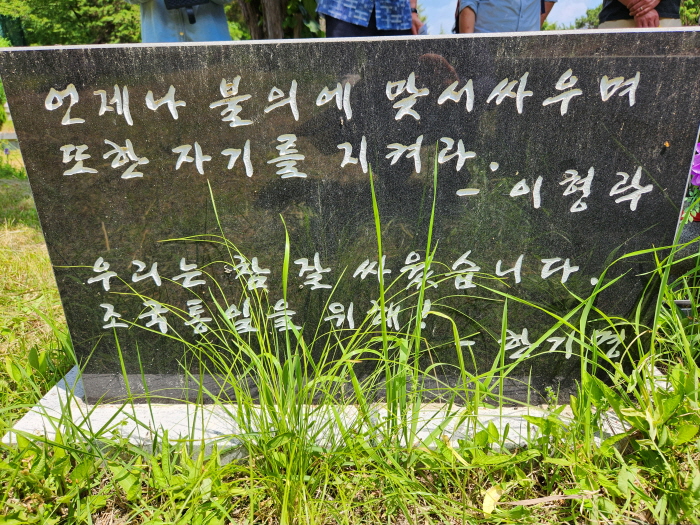 언제나 불의에 맞서싸우며
또한 자기를 지켜라.
- 이형락
우리는 참 잘 싸웠습니다.
조국통일을 위해!
- 한기명